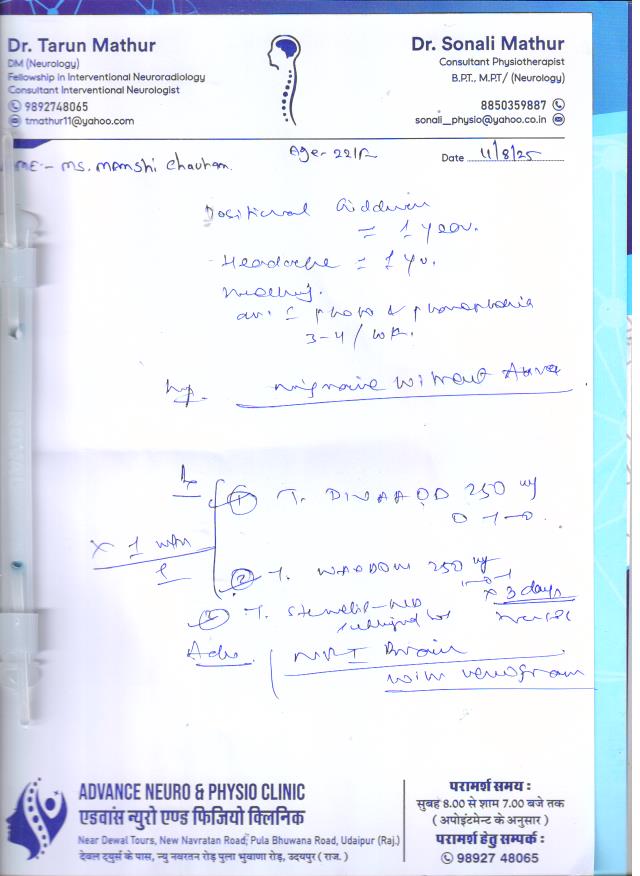 Dr. Tarun Mathur
DM (Neurology)
Fellowship in Interventional Neuroradiology
Consultant Interventional Neurologist
9892748065
tmathur11@yahoo.com
Dr. Sonali Mathur
Consultant Physiotherapist
B.P.T., M.P.T/ (Neurology)
8850359887
sonali_physio@yahoo.co.in
ME:- MS. Manshi Chauhan.
Age- 22/F
Date 11/8/25
Positional
= 1 year.
Headache = 1 yr.
photo & phonophobia
3-4 / wk.
migraine without Aura
① T. 250 mg
0-1-0
x 1 mth
② T. 250 mg
1-0-1
x 3 days
T. Stemetil-MD
Adv. MRI Brain
with venogram
ADVANCE NEURO & PHYSIO CLINIC
एडवांस न्युरो एण्ड फिजियो क्लिनिक
Near Dewal Tours, New Navratan Road, Pula Bhuwana Road, Udaipur (Raj.)
देवल टयुर्स के पास, न्यु नवरतन रोड़ पुला भुवाणा रोड़, उदयपुर ( राज. )
परामर्श समय :
सुबह 8.00 से शाम 7.00 बजे तक
( अपोइंटमेन्ट के अनुसार )
परामर्श हेतु सम्पर्क :
98927 48065